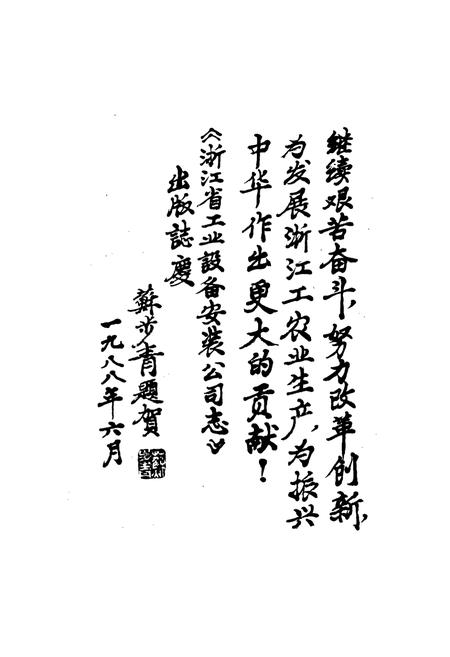 继续艰苦奋斗,努力改革创新,
为发展浙江工农业生产,为振兴
中华作出更大的贡献!
《浙江省工业設备安装公司志》
出版誌慶
蘇步青題賀
一九八八年六月